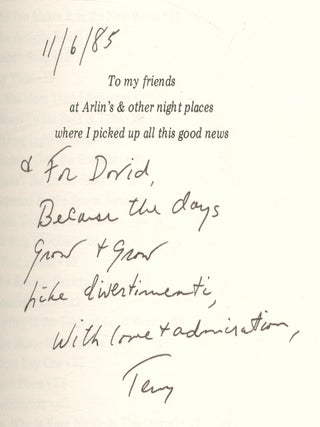 11/6/85
To my friends
at Arlin's & other night places
where I picked up all this good news
& For David,
Because the days
Grow + Grow
Like divertimenti,
With love + admiration,
Terry